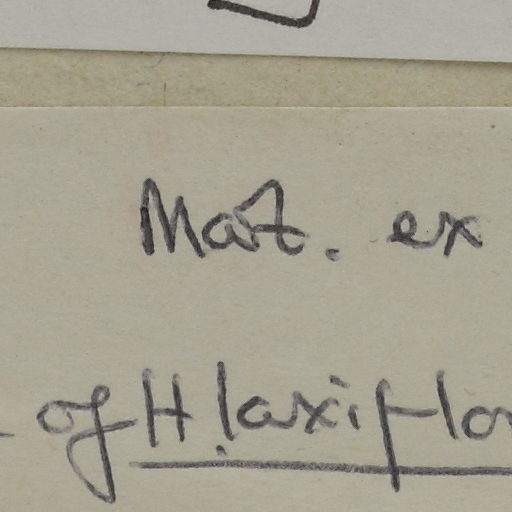 Mat. ex
of H. laxiflo